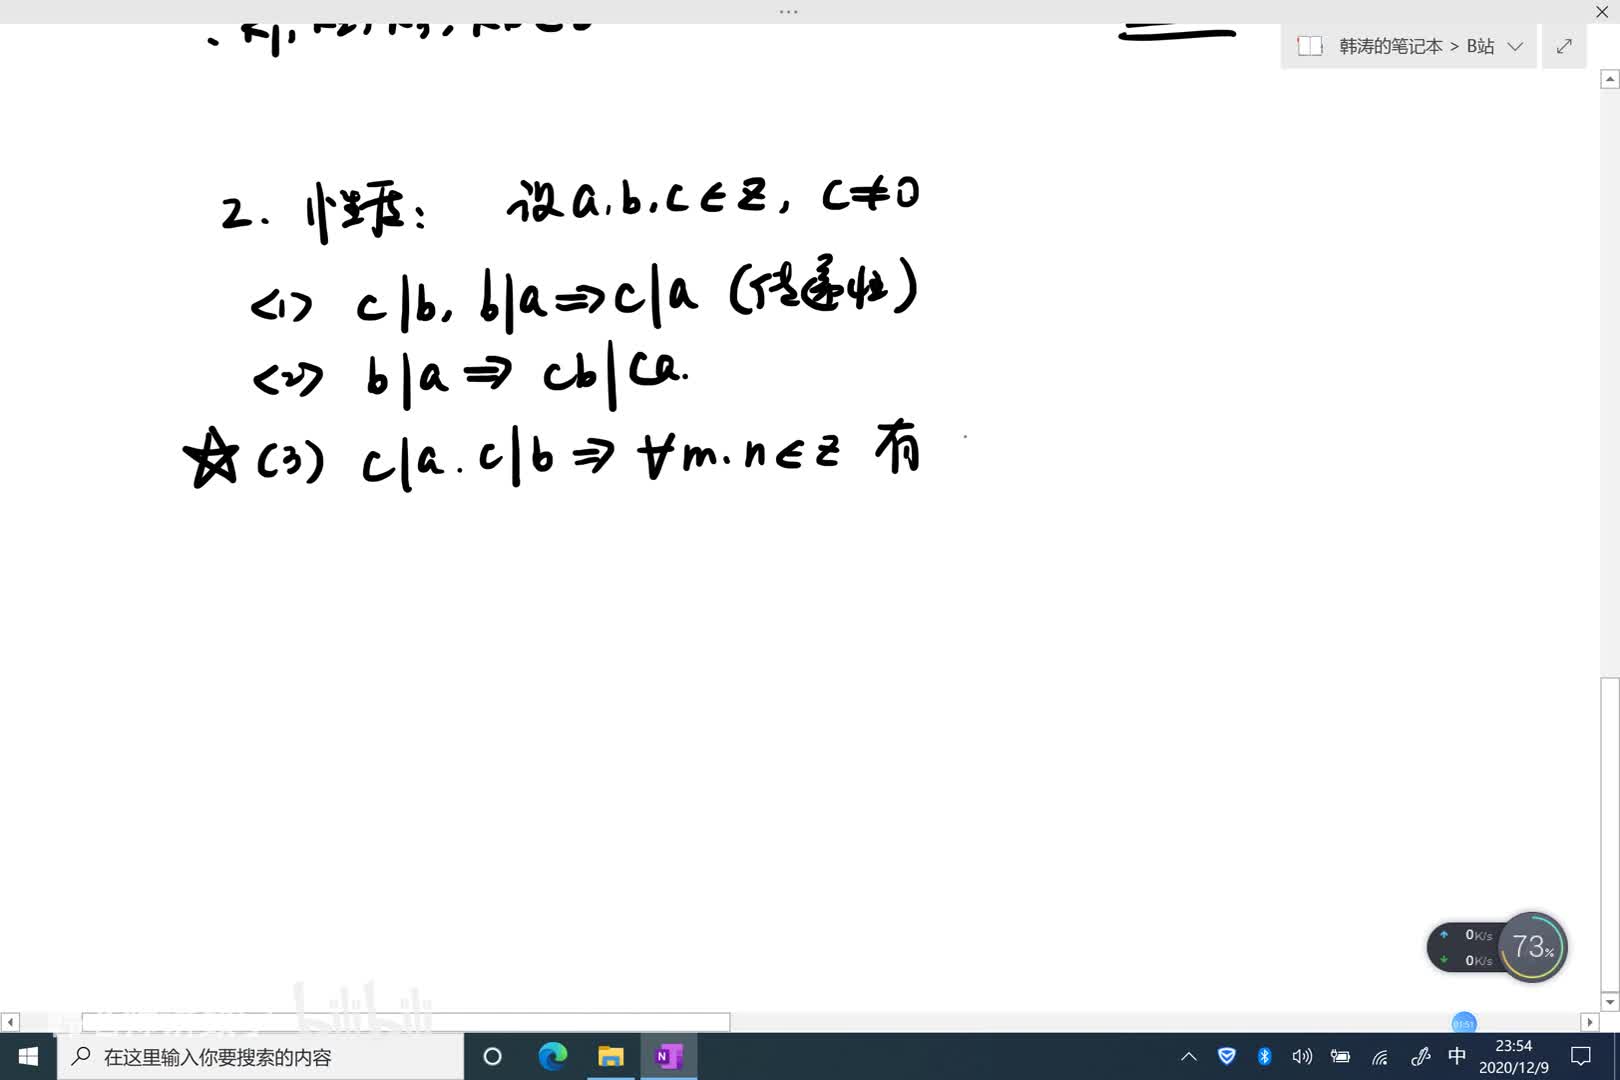 韩涛的笔记本 > B站
2. 性质: 设a,b,c∈Z, c≠0
<1> c|b, b|a⇒c|a (传递性)
<2> b|a ⇒ cb|ca.
☆(3) c|a. c|b ⇒ ∀m.n∈Z 有
0K/s
0K/s
73%
bilibili
01:51
在这里输入你要搜索的内容
中
23:54
2020/12/9